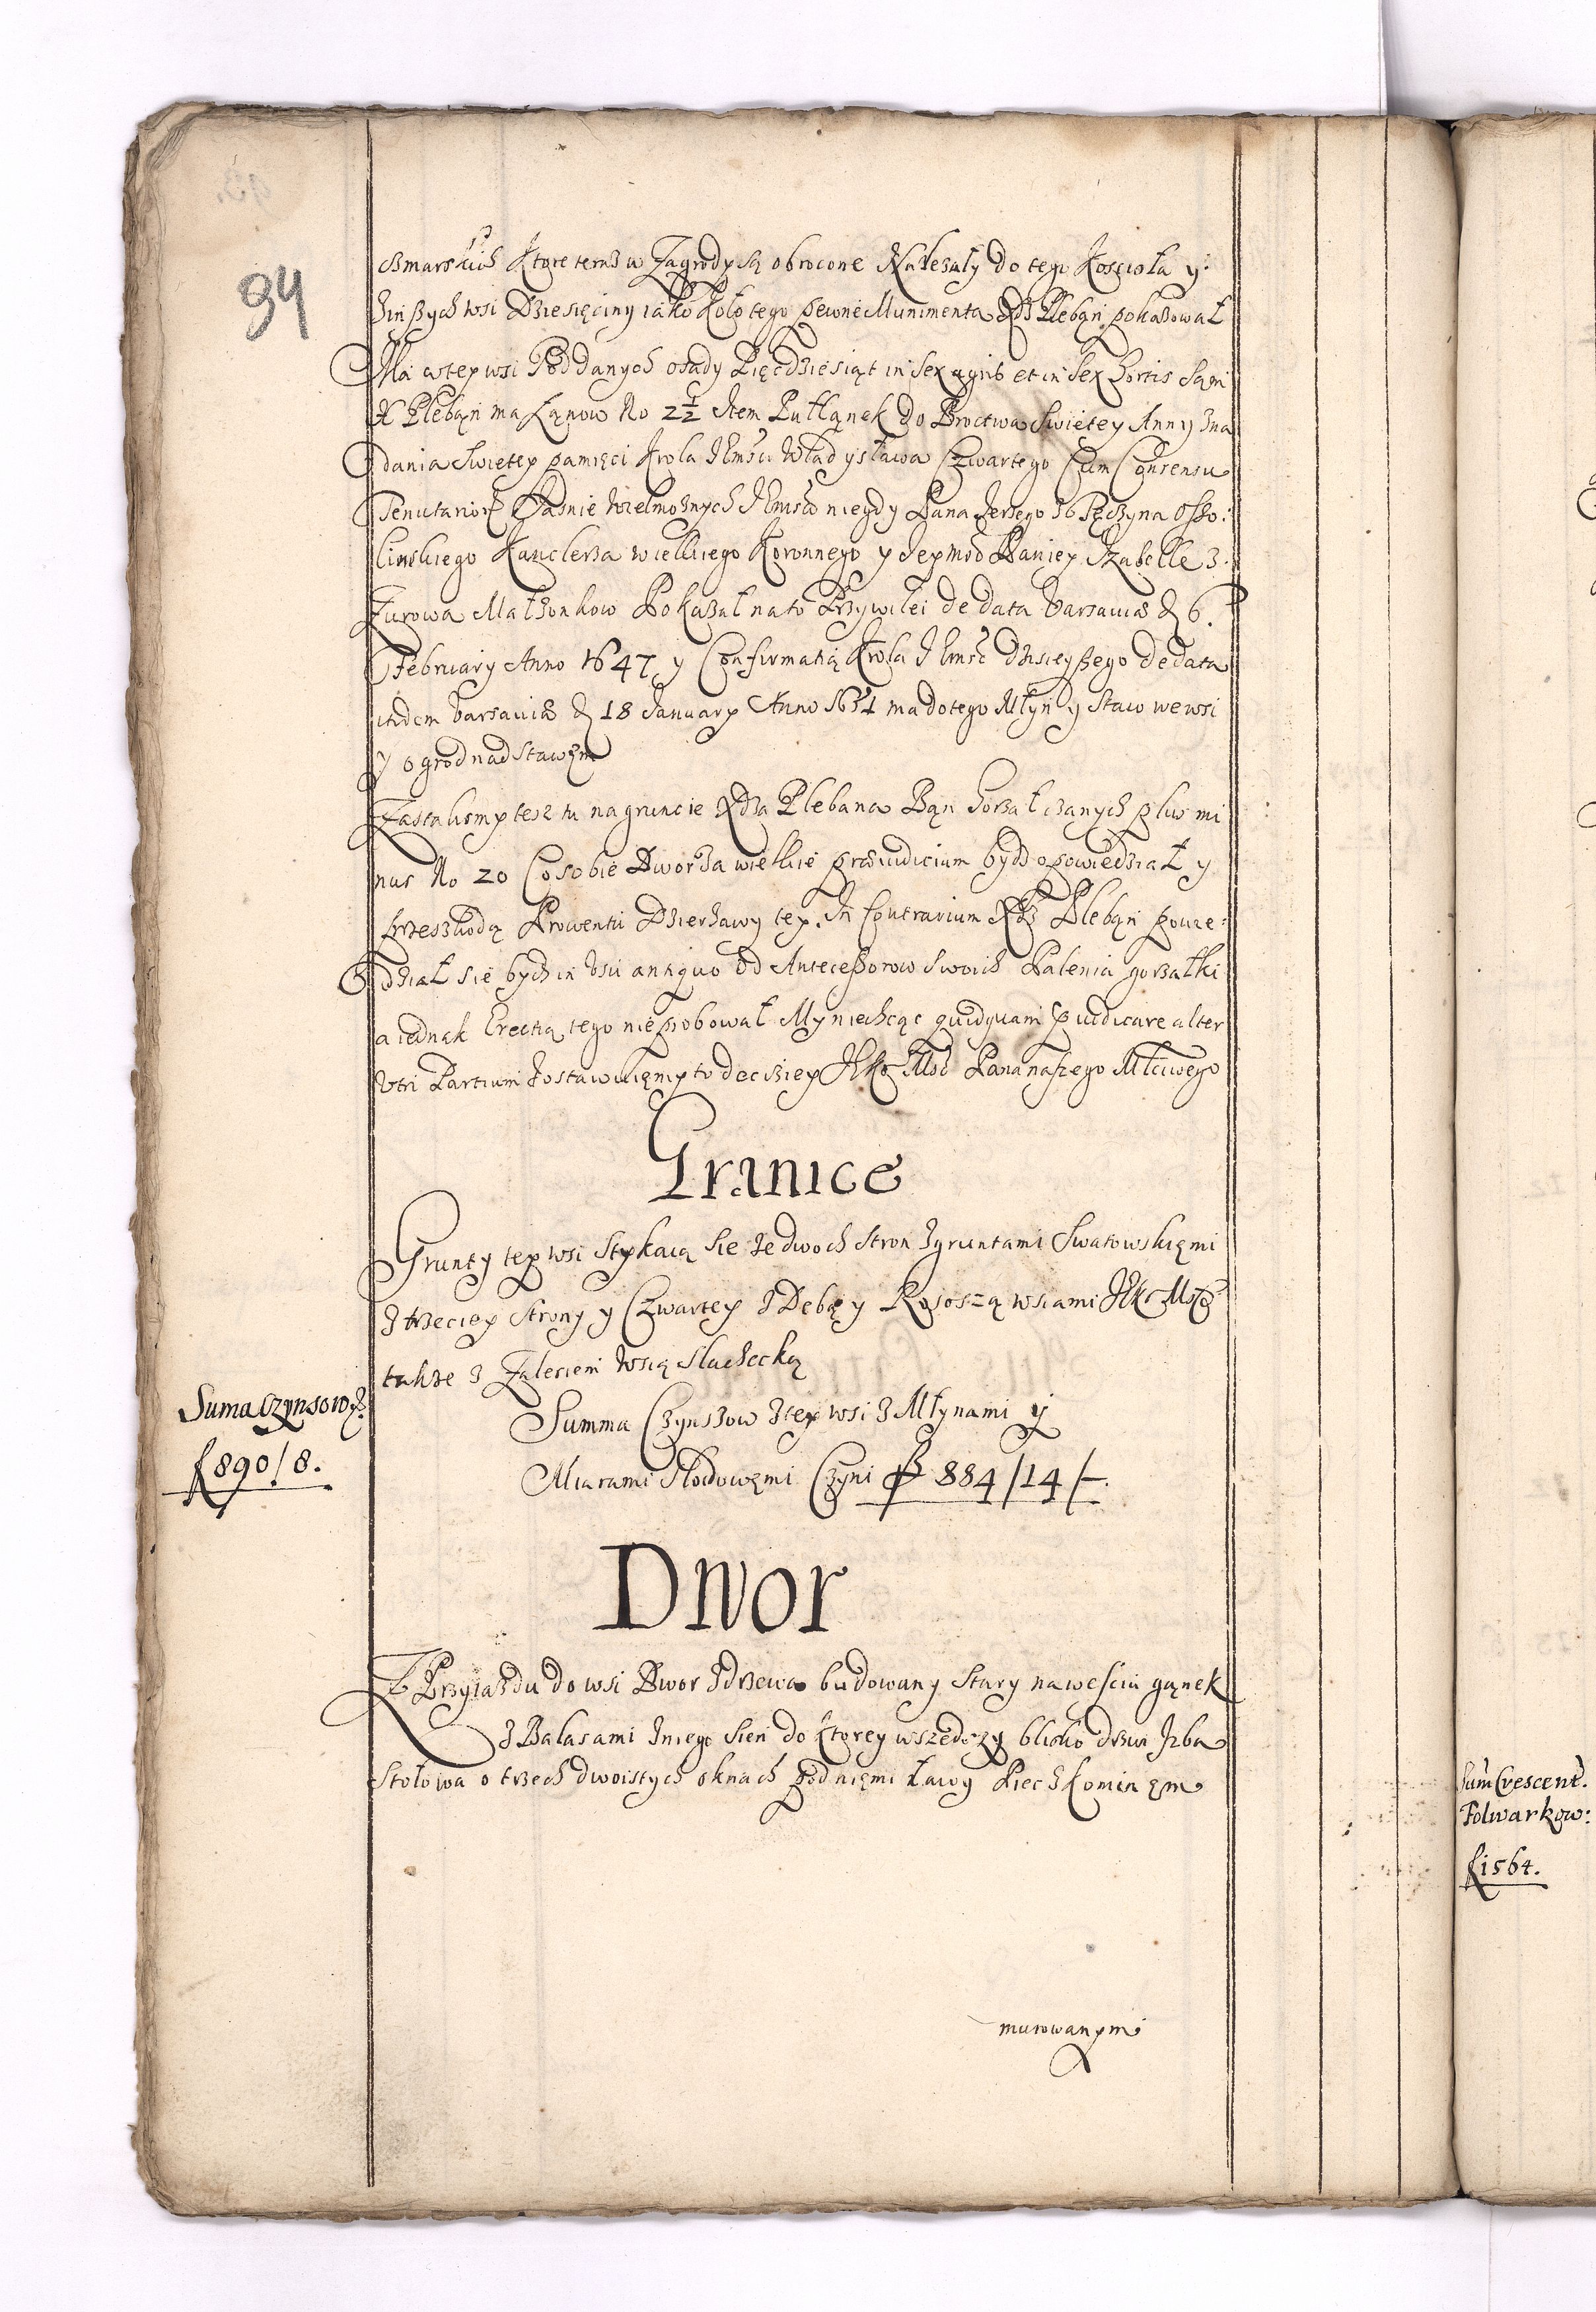 94
czmarskich Ktore teraz w Zagrody są obrocone Należały do tego Koscioła y
inszych wsi Dziesięciny iako Koło tego pewne Munimenta Xdz Plebąn pokazował
Ma wtey wsi Poddanych osady Pięcdziesiąt in sex agris et in sex hortis Sąm
X Plebąn ma Łąnow No 2½ Item Pułłąnek do Broctwa Swietey Anny zna
dania Swietey pamięci Krola JEmści Władysława Czwartego Cum Consensu
Tenutarior Jasnie Wielmoznych JEmsciow niegdy Pana Jerzego z Tęczyna Osso:
linskiego Kanclerza wielkiego Koronnego y Jeymsc Paniey Izabelle z
Zurowa Małzonkow Pokazał na to Przywilei de data Varsaviæ D 6.
February Anno 1647 y Confirmatią Krola JEmsc dzisieyszego de data
itidem Varsaviæ D 18 January Anno 1651 ma do tego Młyn y Staw we wsi
y ogrod nad Stawęm
Zastalismy tesz tu na gruncie Xdza Plebana Bąn gorzałczanych plus mi
nus No 20 Co sobie Dworza wielkie præiudicium bydz opowiedział y
przeszkodą Prowentu Dzierzawy tey. In Contrarium Xdz Plebąn powie:
dział sie bydz in Vsu antiquo od Antecessorow swoich Palenia gorzałki
a iednak Erectią tego nie probował My niechcąc quidquam præiudicare alter
Vtri Partium Zostawuięmy to decisiey JKo Mści Pana naszego Młciwego
Granice
Grunty tey wsi Stykaią sie ze dwoch Stron zgruntami Swatowskięmi
z trzeciey Strony y Czwartey z Debą y Rososzą wsiami JKo Mści
takze z Zalesiem Wsią Slachecką
Suma Czynsowych
f 890/8.
Summa Czynszow ztey wsi z Młynami y
Miarami Słodowęmi Czyni f 884/14/–.
Dwor
Z Przyiazdu do wsi Dwor zdrzewa budowany Stary na weściu gąnek
z Balasami Zniego Sien do Ktorey wszedszy blisko drzwi Izba
Stołowa o trzech dwoistych oknach pod nięmi ławy Piec z Kominęm
murowanym
Sum Crescent.
Folwarkow:
f 1564.